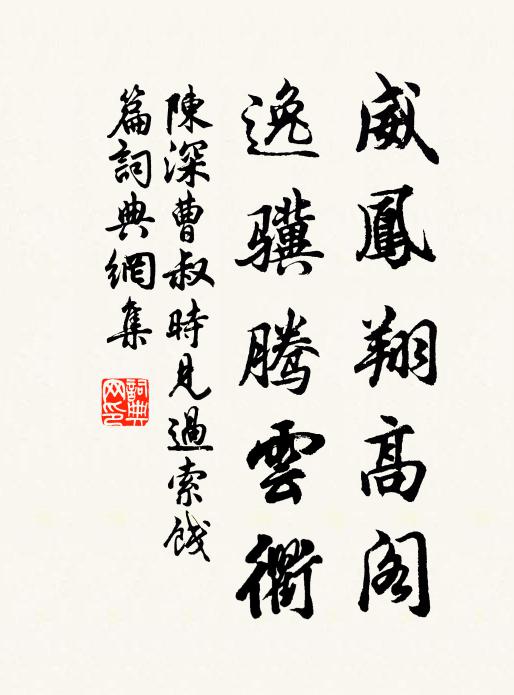 威鳳翔高阁
逸骥腾雲衢
陳深曹叔時見過索餞
篇詞典網集
詞典
网印